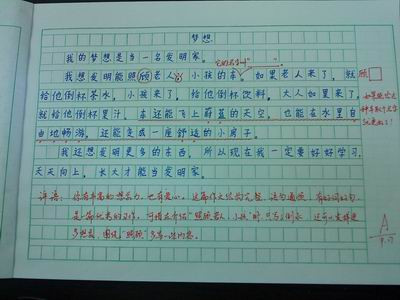 梦想
我的梦想是当一名发明家。
我想发明能照顾老人的小孩的车。如果老人来了,就
给他倒杯茶水,小孩来了,给他倒杯饮料,大人如果来了,
就给他倒杯果汁,车还能飞上蔚蓝的天空,也能在水里自
由地畅游,还能变成一座舒适的小房子。
我还想发明更多的东西,所以现在我一定要好好学习,
天天向上,长大才能当发明家。
顾
评语:你有丰富的想象力,也有爱心。这篇作文结构完整,语句通顺,有好词好句,
是一篇优秀的习作,可惜在介绍“照顾老人、小孩”时,只写了倒水,还可以发挥更
多想象,围绕“照顾”多写一些内容。
A
9.17